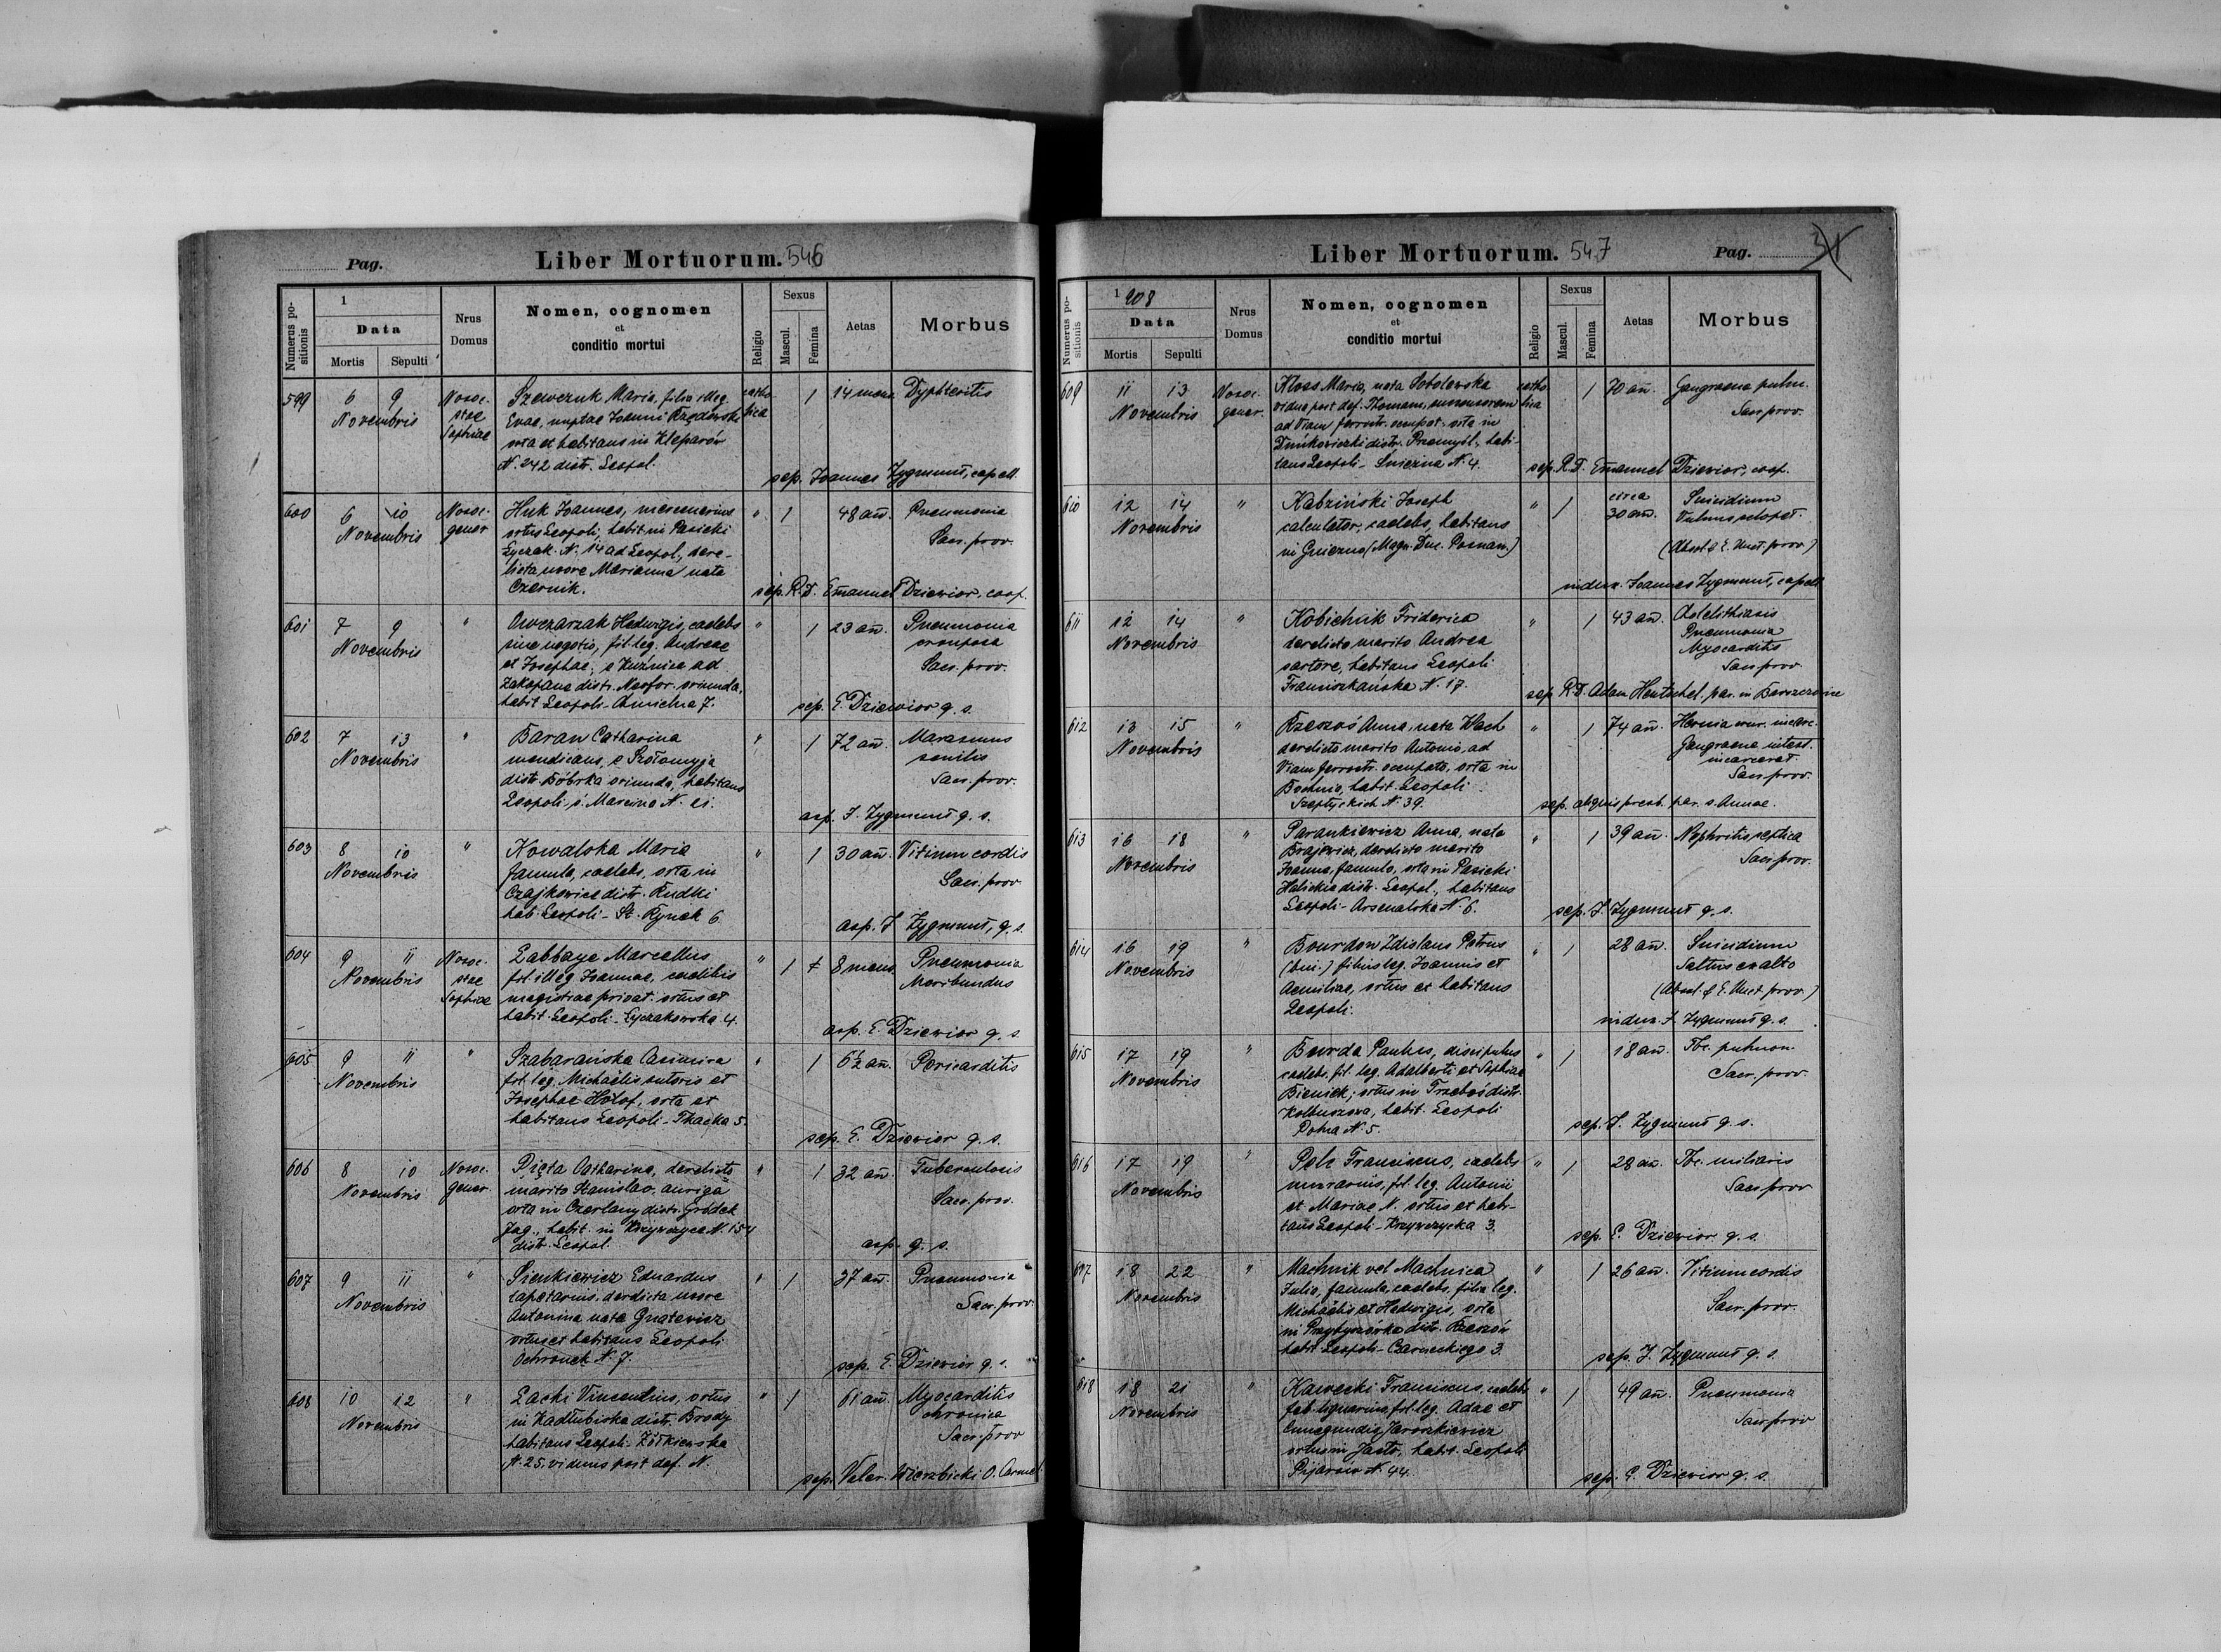 Pag.
Liber Mortuorum. 546
Numerus positionis
1
Data
Mortis
Sepulti
Nrus Domus
Nomen, cognomen
et
conditio mortui
Religio
Sexus
Mascul.
Femina
Aetas
Morbus
599 6 9 Nosoc. Szewczuk Maria, filia illeg. catho- 1 14 mens Dyphteritis
Novembris stae Evae, nuptae Joanni Rządowski lica
Sophiae orta et habitans in Kleparów
N. 242 distr. Leopol.
sep. Joannes Zygmunt, capell.
600 6 10 Nosoc. Huk Joannes, mercenarius " 1 48 an̄. Pneumonia
Novembris gener ortus Leopoli, habit. in Pasieki Sacr. prov.
Łyczak. N. 14 ad Leopol., dere-
licta uxore Marianna nata
Czernik.
sep. R.D. Emanuel Dziewior, coop.
601 7 9 " Owczarzak Hedwigis, caelebs " 1 23 an̄. Pneumonia
Novembris sine negotio, fil. leg. Andreae crouposa
et Josephae, e Kuźnice ad Sacr. prov.
Zakopane distr. Neofor. oriunda,
habit Leopoli - 7.
sep. E. Dziewior q. s.
602 7 13 " Baran Catharina " 1 72 an̄. Marasmus
Novembris mendicans, e Szołomyja senilis
distr. Bóbrka oriunda, habitans Sacr. prov.
Leopoli, ś. Marcina N. 21.
asp. J. Zygmunt q. s.
603 8 10 " Kowalska Maria " 1 30 an̄. Vitium cordis
Novembris famula, caelebs, orta in Sacr. prov.
Czajkowice distr. Rudki
hab. Leopoli - St. Rynek 6
asp. J. Zygmunt, q. s.
604 9 11 Nosoc. Labbaye Marcellus " 1 8 mens. Pneumonia
Novembris stae fil. illeg. Joannae, caelibis Moribundus
Sophiae magistrae privat. ortus et
habit. Leopoli - Łyczakowska 4.
asp. E. Dziewior q. s.
605 9 11 " Szabarańska Casimira " 1 6½ an̄. Pericarditis
Novembris fil. leg. Michaëlis sutoris et
Josephae Hołof, orta et
habitans Leopoli - Tkacka 5.
sep. E. Dziewior q. s.
606 8 10 Nosoc. Pięta Catharina, derelicto " 1 32 an̄. Tuberculosis
Novembris gener. marito Stanislao, auriga Sacr. prov.
orta in Czerlany distr. Gródek
Jag., habit. in Krzywczyce N. 154
distr. Leopol.
asp. q. s.
607 9 11 " Sienkiewicz Eduardus " 1 37 an̄. Pneumonia
Novembris tapetarius, derelicta uxore Sacr. prov.
Antonina nata Gnatewicz
ortus et habitans Leopoli
Ochronek N. 7.
sep. E. Dziewior q. s.
608 10 12 " Lacki Vincentius, ortus " 1 61 an̄. Myocarditis
Novembris in Kadłubiska distr. Brody chronica
habitans Leopoli - Żółkiewska Sacr. prov
N. 25, viduus post def. N.
sep. Valer. Wierzbicki O. Carmel.
Liber Mortuorum. 547
Pag. 31
Numerus positionis
1 908
Data
Mortis
Sepulti
Nrus Domus
Nomen, cognomen
et
conditio mortui
Religio
Sexus
Mascul.
Femina
Aetas
Morbus
609 11 13 Nosoc. Kloss Maria, nata Sobolewska catho- 1 70 an̄. Gangraena pulm.
Novembris gener. vidua post def. Thomam, lica Sacr. prov.
ad Viam ferrostr. occupat. orta in
distr. Przemyśl, habi-
tans Leopoli - Śnieżna N. 4.
sep. R.D. Emanuel Dziewior, coop.
610 12 14 " Kabziński Joseph " 1 circa 30 an̄. Suicidium
Novembris calculator, caelebs, habitans Vulnus sclopet.
in Gniezno (Magn. Duc. Posnan.) (Absol. & E. Unct. prov.)
indux. Joannes Zygmunt, capell
611 12 14 " Kobichnik Friderica " 1 43 an̄. Cholelithiasis
Novembris derelicto marito Andrea Pneumonia
sartore, habitans Leopoli Myocarditis
Franciszkańska N. 17. Sacr. prov.
sep. R.D. Adam Hentschel, par. in
612 13 15 " Rzeszoś Anna, nata Wach " 1 74 an̄. Hernia crur. incarc.
Novembris derelicto marito Antonio, ad Gangraena intest.
Viam ferrostr. occupato, orta in incarcerat.
Bochnia, habit. Leopoli Sacr. prov.
Szeptyckich N. 39.
sep. aliquis presb. par. s. Annae.
613 16 18 " Parankiewicz Anna, nata " 1 39 an̄. Nephritis septica
Novembris Brajewicz, derelicto marito Sacr. prov.
Joanne, famulo, orta in Pasieki
Halickie distr. Leopol., habitans
Leopoli - Arsenalska N. 6.
sep. J. Zygmunt q. s.
614 16 19 " Bourdon Zdislaus Petrus " 1 28 an̄. Suicidium
Novembris (bin.) filius leg. Joannis et Saltus ex alto
Aemiliae, ortus et habitans (Absol. & E. Unct. prov.)
Leopoli.
indux. J. Zygmunt q. s.
615 17 19 " Burda Paulus, discipulus " 1 18 an̄. Tbc. pulmon.
Novembris caelebs, fil. leg. Adalberti et Sophiae Sacr. prov.
Bieniek, ortus in Trzeboś distr.
Kolbuszowa, habit. Leopoli
Polna N. 5.
sep. J. Zygmunt q. s.
616 17 19 " Pelc Franciscus, caelebs " 1 28 an̄. Tbc. miliaris
Novembris murarius, fil. leg. Antonii Sacr. prov
et Mariae N. ortus et habi-
tans Leopoli - Krzywczycka 3.
sep. E. Dziewior q. s.
617 18 22 " Machnik vel Machnica " 1 26 an̄. Vitium cordis
Novembris Julia, famula, caelebs, filia leg. Sacr. prov.
Michaëlis et Hedwigis, orta
in Przybyszówka distr. Rzeszów
habit. Leopoli - Czarneckiego 3.
sep. J. Zygmunt q. s.
618 18 21 " Kawecki Franciscus, caelebs " 1 49 an̄. Pneumonia
Novembris fab. lignarius, fil. leg. Adae et Sacr. prov
Cunegundis Jaroszkiewicz
ortus in Jasło, habit. Leopoli
Pijarów N. 44.
sep. E. Dziewior q. s.